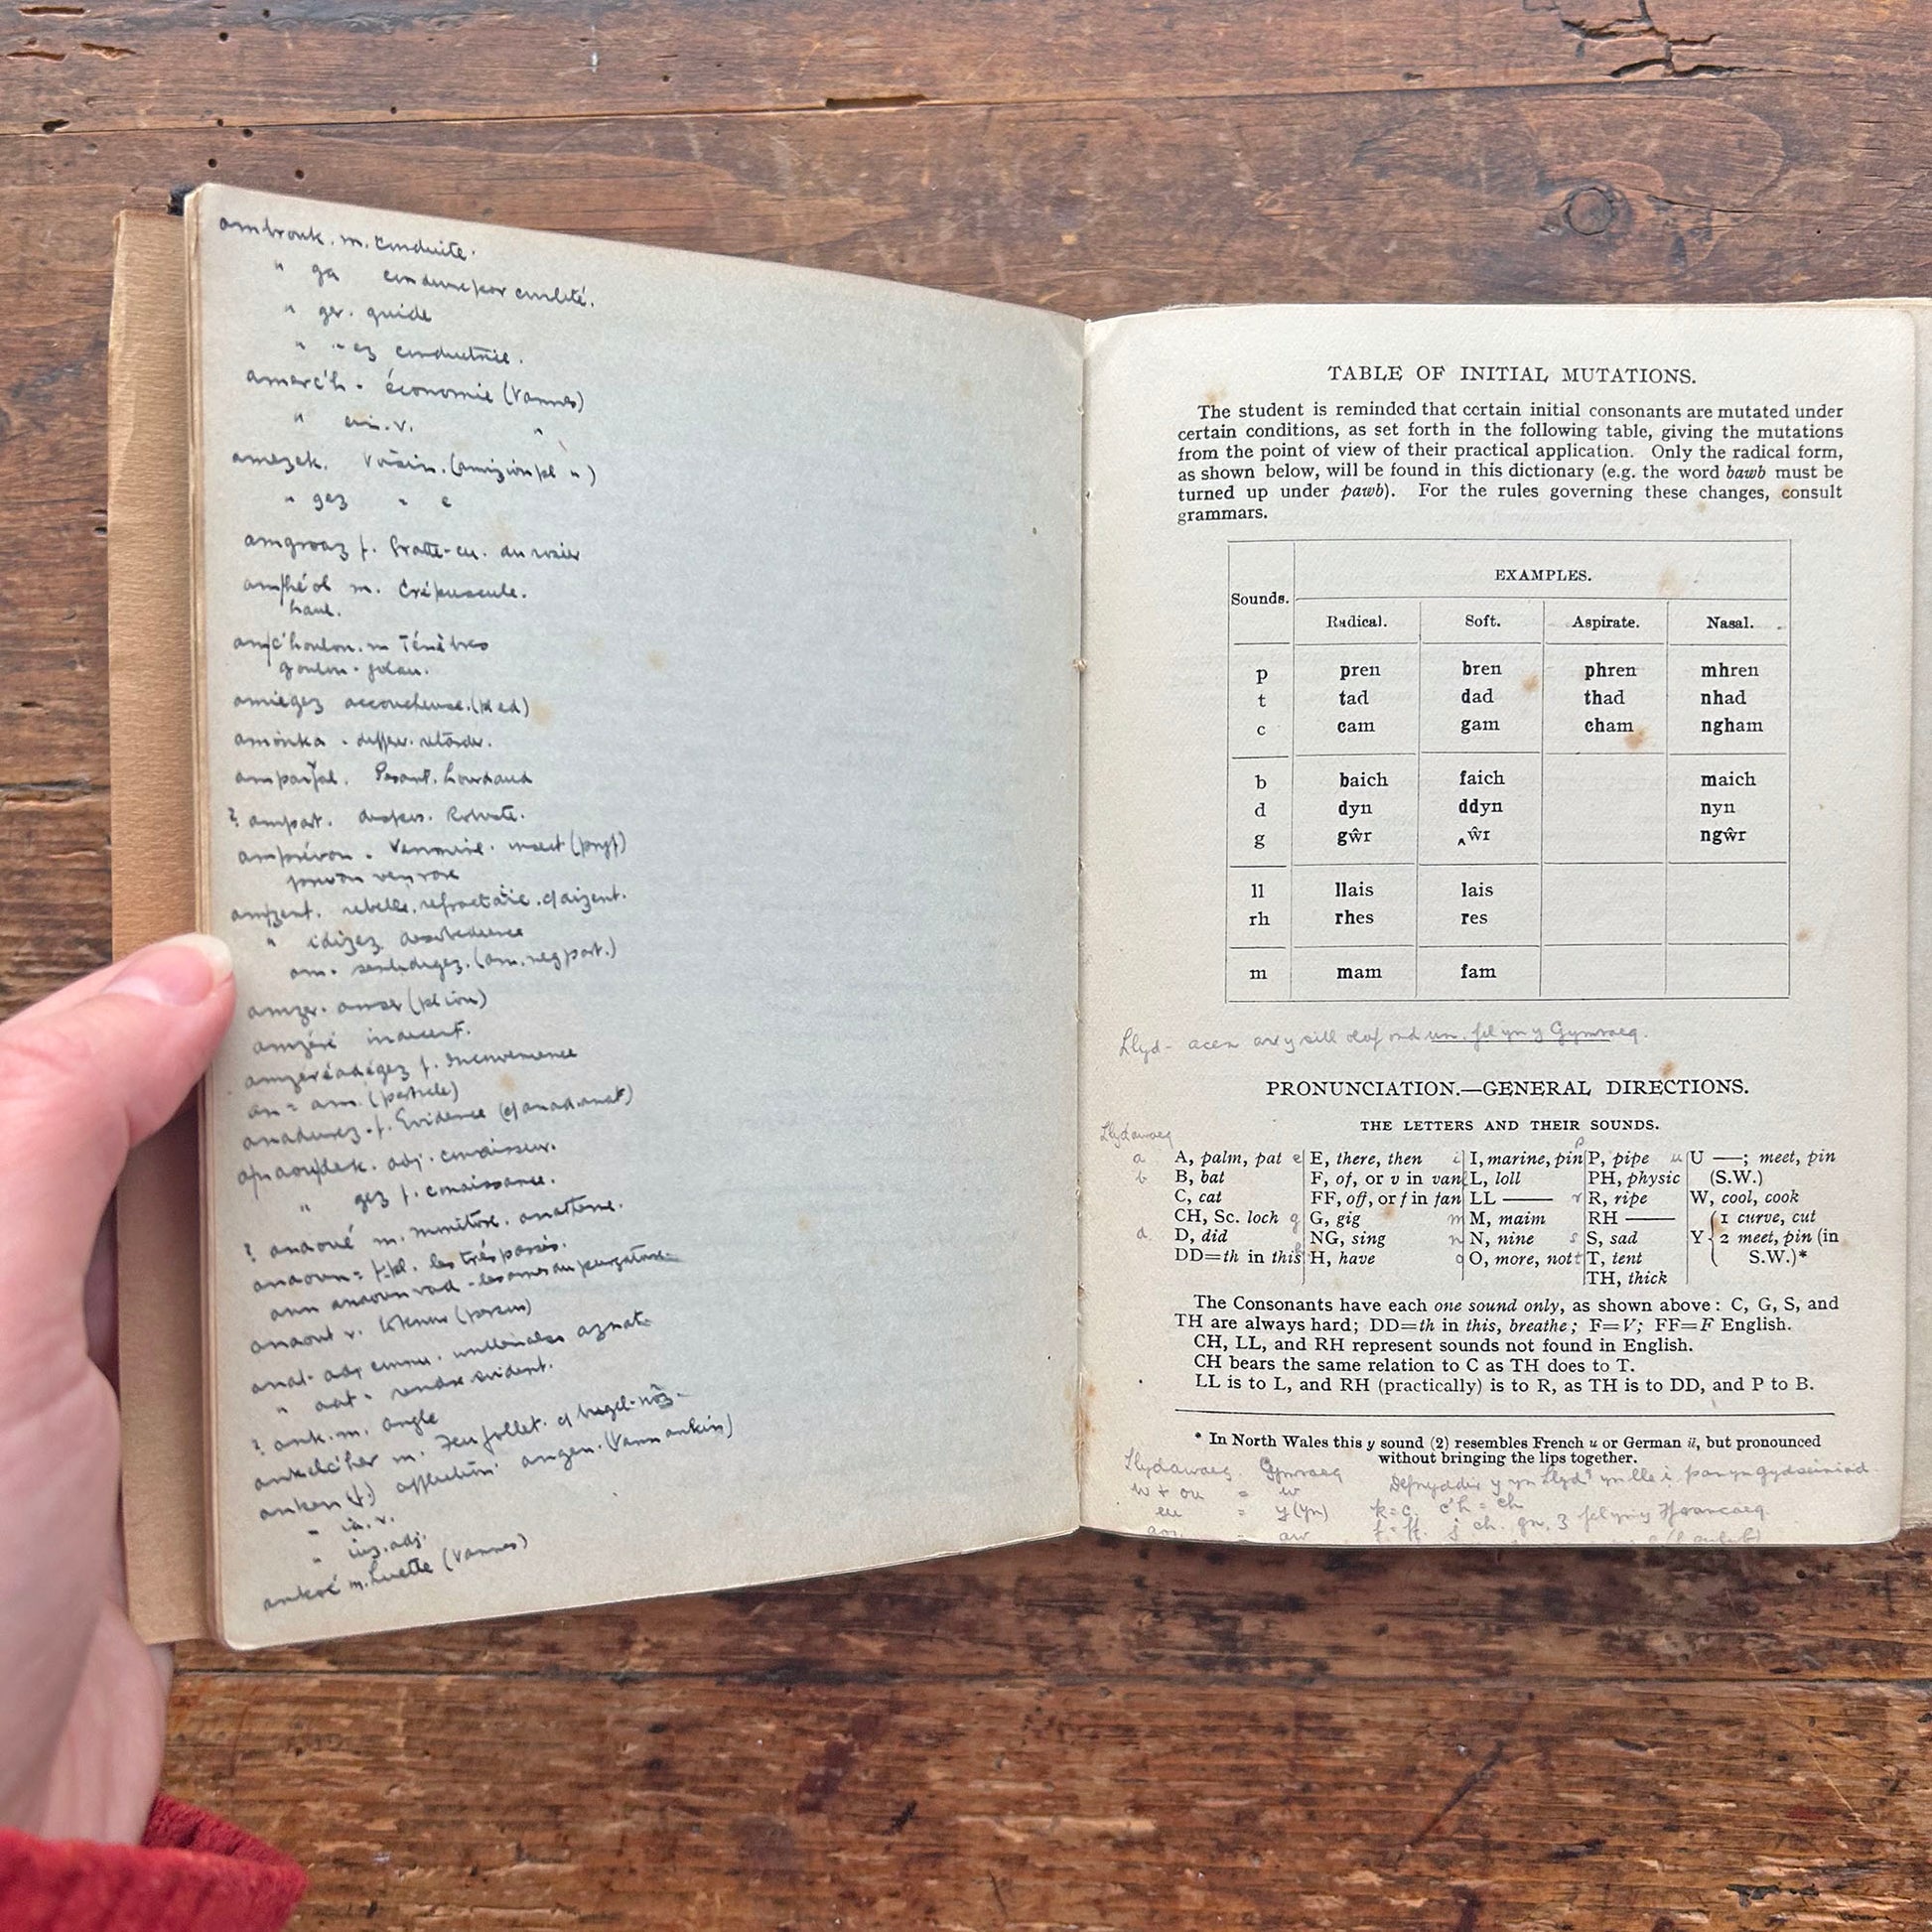 ambrouk. m. conduite.
" ga conduire par civilité.
" ger. guide
" " ez conductrice.
amerc'h - économie (Vannes)
" ein. v. "
amezek. Voisin. (amizion pl " )
" gez " e
amgroaz f. Gratte-cu. du rosier
amhéol m. Crépuscule.
haul.
amc'houlou. m Ténèbres
goulou - golau.
amiegez accoucheuse. (pl ed)
differ. retarder.
Pesant. Lourdaud
? ampart. Robuste.
amprévan - Vermine. insect (pryf)
amzent. rebelle, refractaire.
" idigez
(am. neg part.)
amzer. amser (pl iou)
amzéré indecent.
amzeréadégez f. Inconvenience
an = am. (particle)
anadurez - f. Evidence
adj. connaisseur.
" gez f. conaissance.
? anaoué m. monitoire. anathème.
anaoun = f. pl. les trépassés.
ann anaoun vad - les ames du purgatoire
anaout v.
anat - adj connu.
" aat - rendre evident.
? ank. m. angle
ankelc'her m. Feu follet.
anken (f.) affliction angen. (Vann ankin)
" ia. v.
" iuz. adj.
ankoé m. Luette (Vannes)
TABLE OF INITIAL MUTATIONS.
The student is reminded that certain initial consonants are mutated under
certain conditions, as set forth in the following table, giving the mutations
from the point of view of their practical application. Only the radical form,
as shown below, will be found in this dictionary (e.g. the word bawb must be
turned up under pawb). For the rules governing these changes, consult
grammars.
Sounds. EXAMPLES.
Radical. Soft. Aspirate. Nasal.
p pren bren phren mhren
t tad dad thad nhad
c cam gam cham ngham
b baich faich maich
d dyn ddyn nyn
g gŵr ‸ŵr ngŵr
ll llais lais
rh rhes res
m mam fam
Llyd - acen ar y sill olaf ond un. fel yn y Gymraeg.
PRONUNCIATION.—GENERAL DIRECTIONS.
THE LETTERS AND THEIR SOUNDS.
Llydawaeg
a A, palm, pat e E, there, then i I, marine, pin p P, pipe u U —; meet, pin
b B, bat F, of, or v in van L, loll PH, physic (S.W.)
C, cat FF, off, or f in fan LL — r R, ripe W, cool, cook
CH, Sc. loch g G, gig m M, maim RH — Y 1 curve, cut
d D, did NG, sing n N, nine s S, sad 2 meet, pin (in
DD=th in this h H, have o O, more, not t T, tent S.W.)*
TH, thick
The Consonants have each one sound only, as shown above: C, G, S, and
TH are always hard; DD=th in this, breathe; F=V; FF=F English.
CH, LL, and RH represent sounds not found in English.
CH bears the same relation to C as TH does to T.
LL is to L, and RH (practically) is to R, as TH is to DD, and P to B.
* In North Wales this y sound (2) resembles French u or German ü, but pronounced
without bringing the lips together.
Llydawaeg. Gymraeg Defnyddir y yn Llyd. yn lle i, pan yn gydseiniad.
w + ou = w
eu = y (yn) k=c, c'h = ch
aou " aw f = ff. j ch. gn. z fel yn y Ffrancaeg.